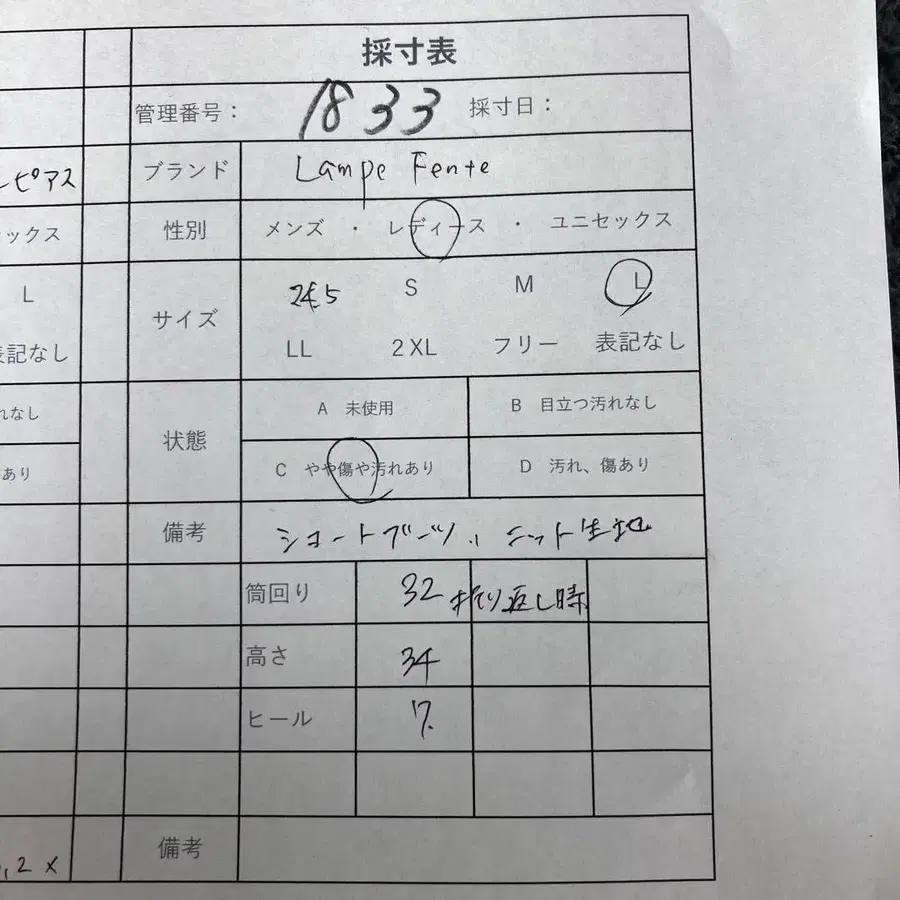 採寸表
管理番号： 1833 採寸日：
ブランド Lampe Fente
ピアス
性別 メンズ ・ レディース ・ ユニセックス
ックス
サイズ 24.5 S M L
L
LL 2XL フリー 表記なし
表記なし
状態 A 未使用 B 目立つ汚れなし
れなし
C やや傷や汚れあり D 汚れ、傷あり
あり
備考 ショートブーツ ニット生地
筒回り 32 折り返し時
高さ 34
ヒール 7.
備考
.2 ×